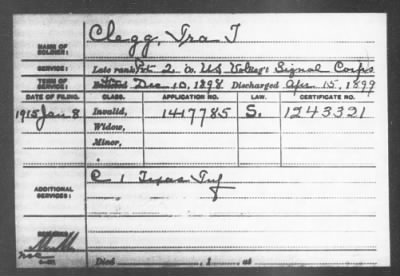 NAME OF SOLDIER: Clegg, Ira T
SERVICE: Late rank Pvt 2 Co. US Vol Signal Corps
TERM OF SERVICE: Enlisted Dec 10, 1898 Discharged Apr 15, 1899
DATE OF FILING. CLASS. APPLICATION NO. LAW. CERTIFICATE NO.
1915 Jan 8 Invalid, 1417785 S. 1243321
Widow,
Minor,
ADDITIONAL SERVICES: C 1 Texas Inf
REMARKS:
Died , 1 , at